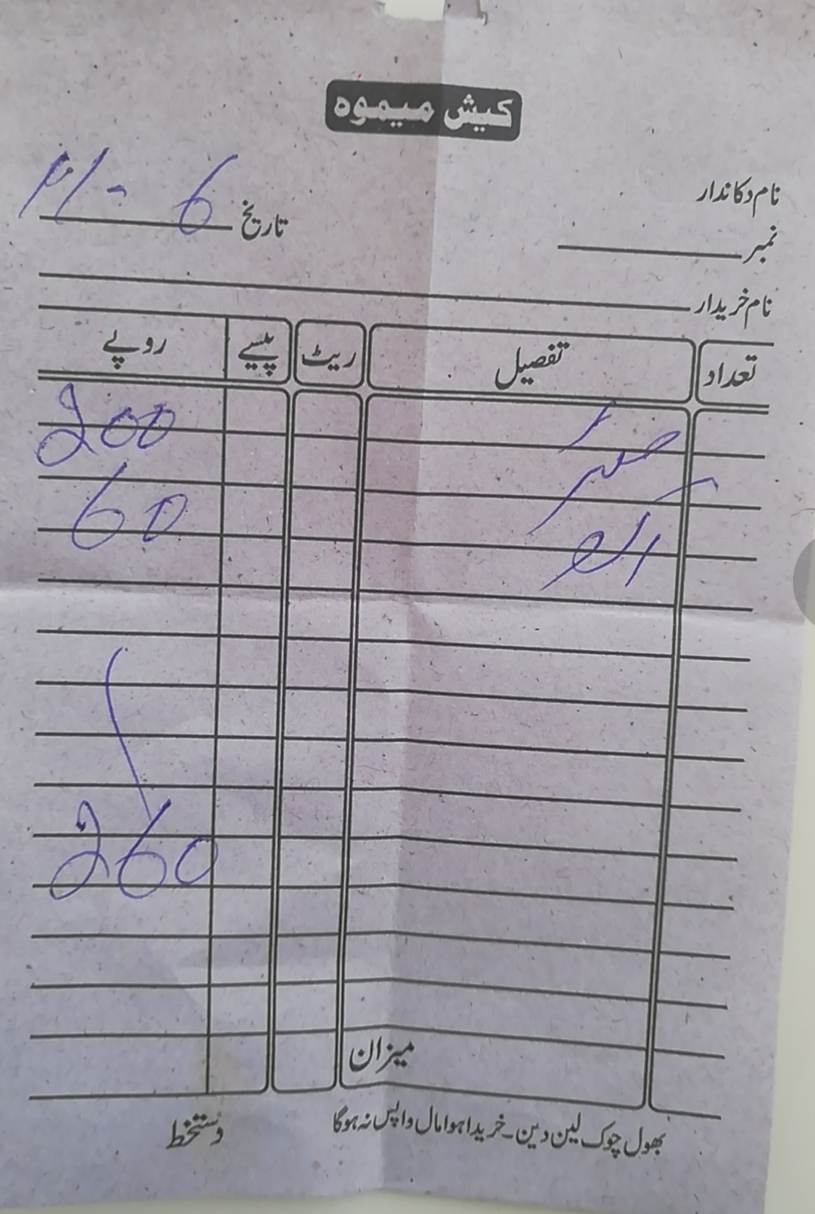 کیش میموہ
نام دکاندار
نمبر تاریخ 6
نام خریدار
تعداد تفصیل ریٹ پیسے روپے
200
60
260
میزان
بھول چوک لین دین۔ خریدا ہوا مال واپس نہ ہوگا دستخط